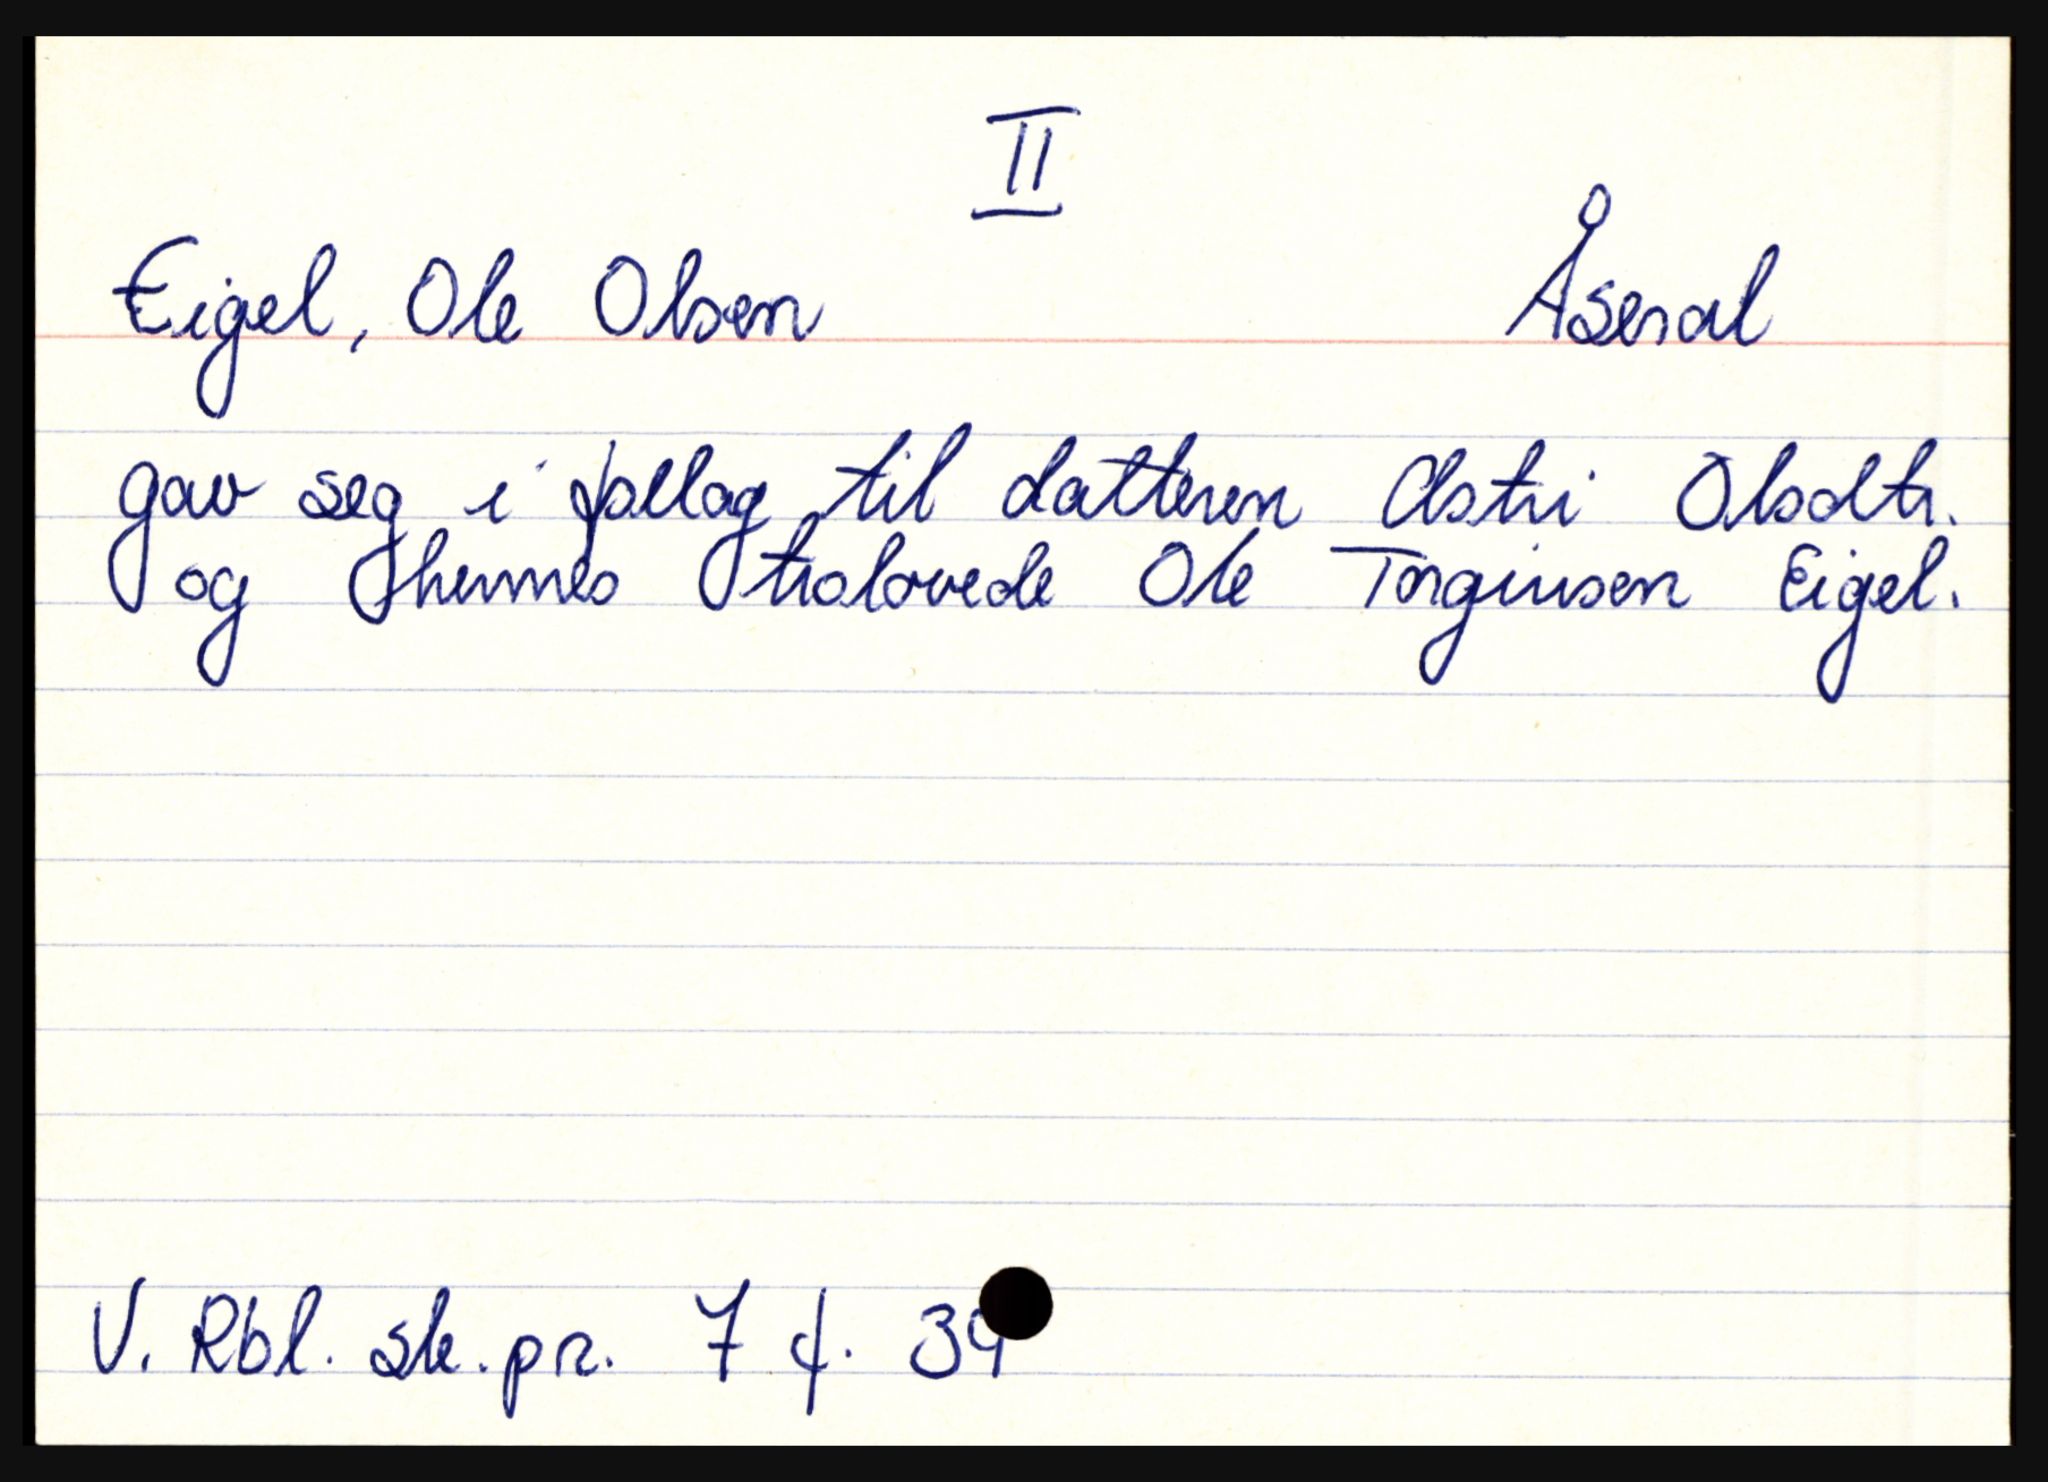 II
Eigel, Ole Olsen Åseral
gav seg i follag til datteren Astri Olsdtr.
og hennes trolovede Ole Torginsen Eigel.
V. Rbl. sk.pr. 7 f. 39